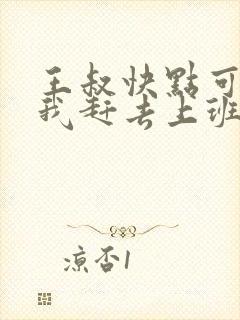 王叔快點可
我赶去上班
凉否1